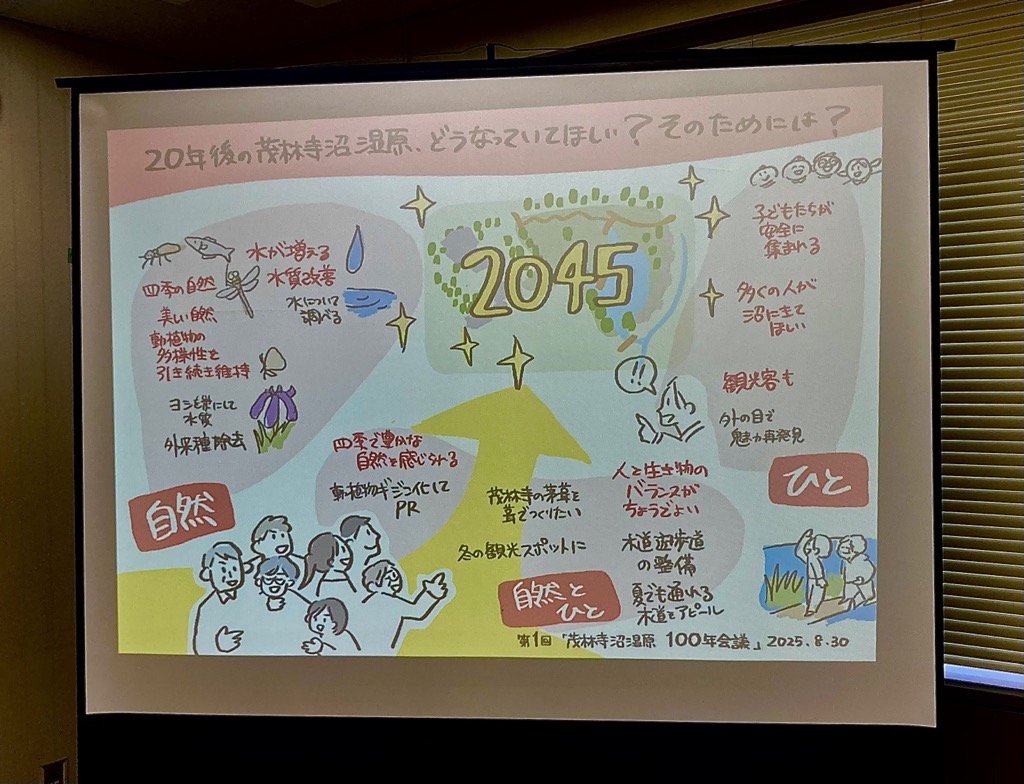 20年後の茂林寺沼湿原、どうなっていてほしい？そのためには？
水が増える
水質改善
水について
調べる
四季の自然
美しい自然
動植物の
多様性を
引き続き維持
ヨシを楽にして
水質
外来種除去
自然
2045
子どもたちが
安全に
集まれる
多くの人が
沼にきて
ほしい
観光客も
外の目で
魅力再発見
ひと
!!
四季で豊かな
自然を感じられる
動植物ギジン化して
PR
茂林寺の茅葺を
葦でつくりたい
冬の観光スポットに
人と生き物の
バランスが
ちょうどよい
木道遊歩道
の整備
夏でも通れる
木道をアピール
自然と
ひと
第1回「茂林寺沼湿原 100年会議」2025.8.30